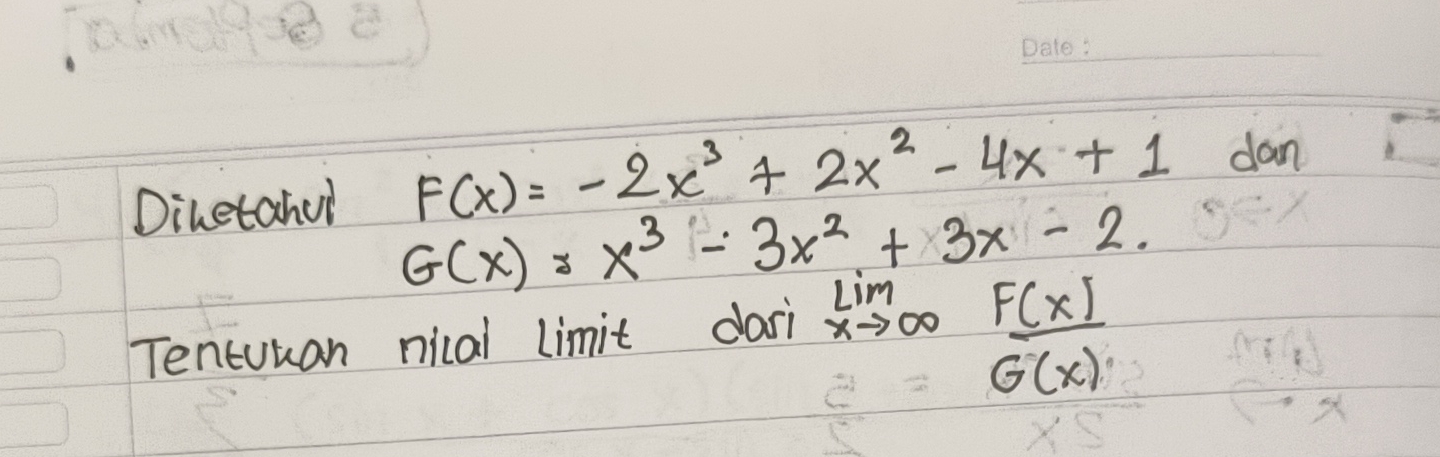 Date :
Diketahui F(x) = -2x³ + 2x² - 4x + 1 dan
G(x) = x³ - 3x² + 3x - 2.
Tentukan nilai limit dari Lim x→∞ F(x)/G(x)